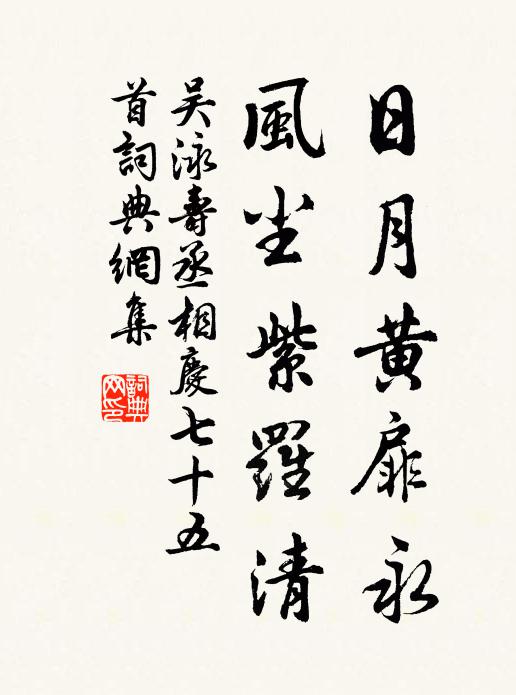 日月黄扉永
風尘紫羅清
吴泳壽丞相慶七十五
首詞典網集
詞典网印